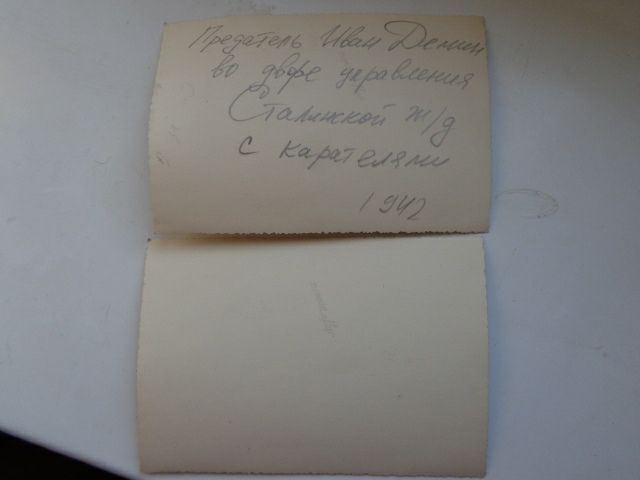 Предатель Иван Демин
во дворе управления
Сталинской ж/д
с карателями
1942